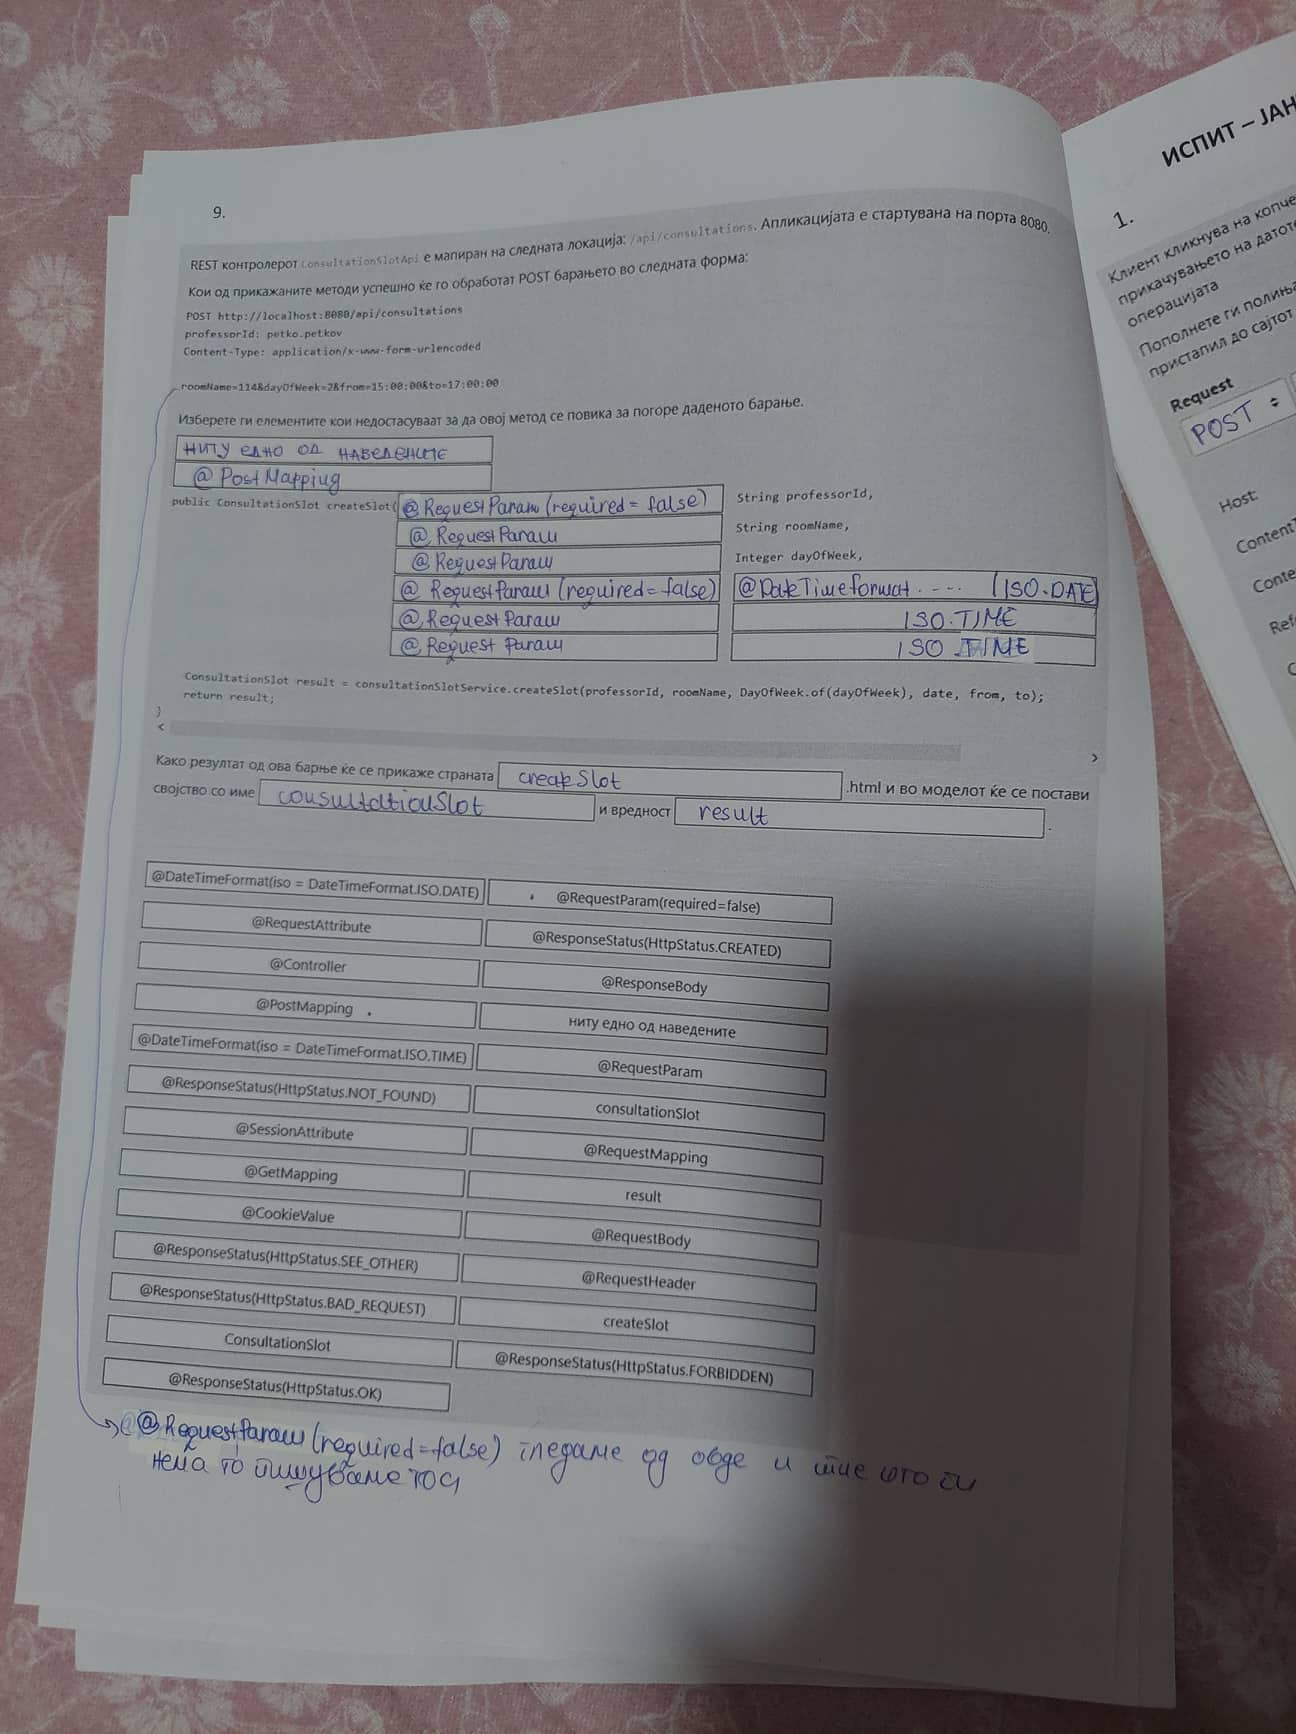 9.
REST контролерот ConsultationSlotApi е мапиран на следната локација: /api/consultations. Апликацијата е стартувана на порта 8080.
Кои од прикажаните методи успешно ќе го обработат POST барањето во следната форма:
POST http://localhost:8080/api/consultations
professorId: petko.petkov
Content-Type: application/x-www-form-urlencoded
roomName=114&dayOfWeek=2&from=15:00:00&to=17:00:00
Изберете ги елементите кои недостасуваат за да овој метод се повика за погоре даденото барање.
ниту едно од наведените
@PostMapping
public ConsultationSlot createSlot( @RequestParam(required=false) String professorId,
@RequestParam String roomName,
@RequestParam Integer dayOfWeek,
@RequestParam(required=false) @DateTimeformat.---- (ISO.DATE
@RequestParam ISO.TIME
@Request Param ISO.TIME
ConsultationSlot result = consultationSlotService.createSlot(professorId, roomName, DayOfWeek.of(dayOfWeek), date, from, to);
return result;
}
< >
Како резултат од ова барње ќе се прикаже страната createSlot .html и во моделот ќе се постави
својство со име consultationSlot и вредност result .
@DateTimeFormat(iso = DateTimeFormat.ISO.DATE) @RequestParam(required=false)
@RequestAttribute @ResponseStatus(HttpStatus.CREATED)
@Controller @ResponseBody
@PostMapping ниту едно од наведените
@DateTimeFormat(iso = DateTimeFormat.ISO.TIME) @RequestParam
@ResponseStatus(HttpStatus.NOT_FOUND) consultationSlot
@SessionAttribute @RequestMapping
@GetMapping result
@CookieValue @RequestBody
@ResponseStatus(HttpStatus.SEE_OTHER) @RequestHeader
@ResponseStatus(HttpStatus.BAD_REQUEST) createSlot
ConsultationSlot @ResponseStatus(HttpStatus.FORBIDDEN)
@ResponseStatus(HttpStatus.OK)
@RequestParam(required=false) гледаме од овде и тие што ги
нема го пишуваме тоа
ИСПИТ – ЈАН
1.
Клиент кликнува на копче
прикачувањето на датоте
операцијата
Пополнете ги полиња
пристапил до сајтот
Request
POST
Host:
Content
Conte
Ref
C